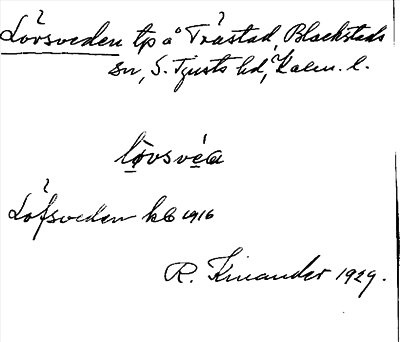 Lövsveden tp å Tråstad, Blackstads
sn, S. Tjusts hd, Kalm. l.
lövsvéa
Löfsveden kb 1916
R. Kinander 1929.